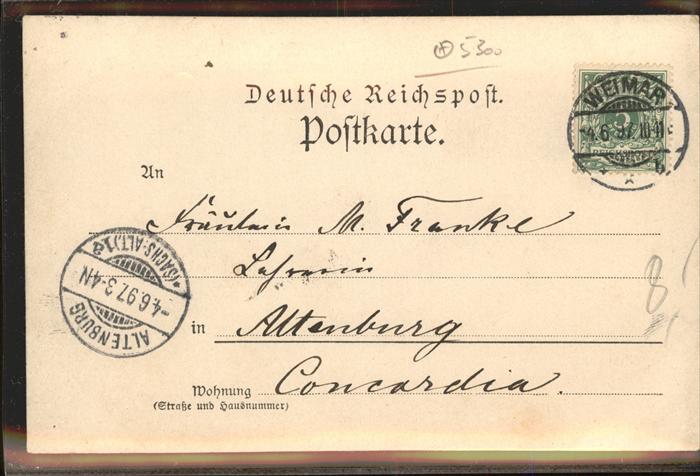 5300
Deutsche Reichspost.
Postkarte.
WEIMAR
4.6.97. 10-11
REICHSPOST
An
Fräulein M. Franke
Lehrerin
in Altenburg
Wohnung Concordia.
(Straße und Hausnummer)
ALTENBURG
-4.6.97. 3-4N
(SACHS-ALT.)
8